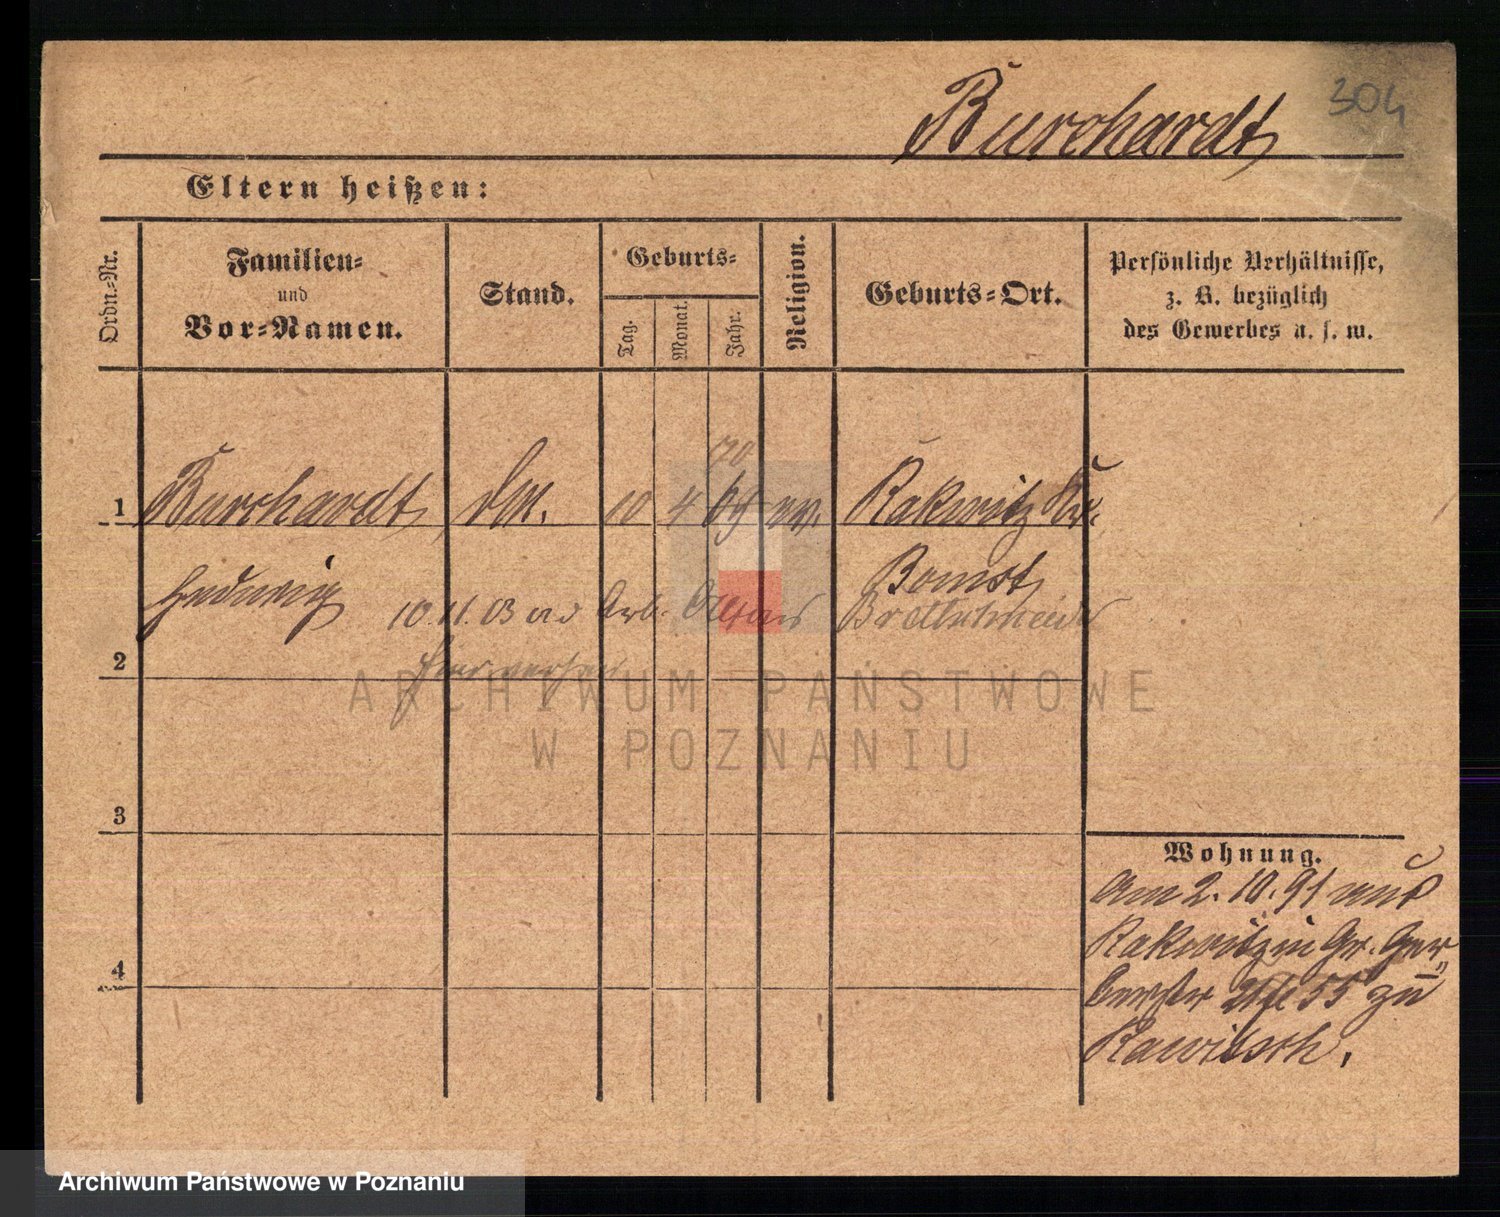 304
Burchardt
Eltern heißen:
Ordn.-Nr.
Familien-
und
Vor-Namen.
Stand.
Geburts-
Tag.
Monat.
Jahr.
Religion.
Geburts-Ort.
Persönliche Verhältnisse,
z. B. bezüglich
des Gewerbes u. s. w.
70
1 Burchardt, 10 4 69 ev. Rakwitz Kr.
Hedwig
Bomst
10.11.03 Arb.
2
ARCHIWUM PAŃSTWOWE
W POZNANIU
3
Wohnung.
Am 2.10.91 aus
Rakwitz in Gr. Ger„
4
berstr 55 zu
Rawitsch.
Archiwum Państwowe w Poznaniu